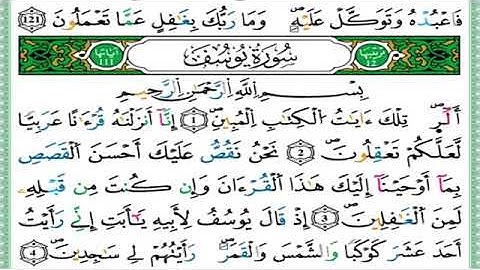 فَٱعۡبُدۡهُ وَتَوَكَّلۡ عَلَيۡهِۚ وَمَا رَبُّكَ بِغَٰفِلٍ عَمَّا تَعۡمَلُونَ 121
ترتيبها 12 سُورَةُ يُوسُف آياتها 111
بِسۡمِ ٱللَّهِ ٱلرَّحۡمَٰنِ ٱلرَّحِيمِ
الٓرۚ تِلۡكَ ءَايَٰتُ ٱلۡكِتَٰبِ ٱلۡمُبِينِ 1 إِنَّآ أَنزَلۡنَٰهُ قُرۡءَٰنًا عَرَبِيّٗا
لَّعَلَّكُمۡ تَعۡقِلُونَ 2 نَحۡنُ نَقُصُّ عَلَيۡكَ أَحۡسَنَ ٱلۡقَصَصِ
بِمَآ أَوۡحَيۡنَآ إِلَيۡكَ هَٰذَا ٱلۡقُرۡءَانَ وَإِن كُنتَ مِن قَبۡلِهِۦ
لَمِنَ ٱلۡغَٰفِلِينَ 3 إِذۡ قَالَ يُوسُفُ لِأَبِيهِ يَٰٓأَبَتِ إِنِّي رَأَيۡتُ
أَحَدَ عَشَرَ كَوۡكَبٗا وَٱلشَّمۡسَ وَٱلۡقَمَرَ رَأَيۡتُهُمۡ لِي سَٰجِدِينَ 4